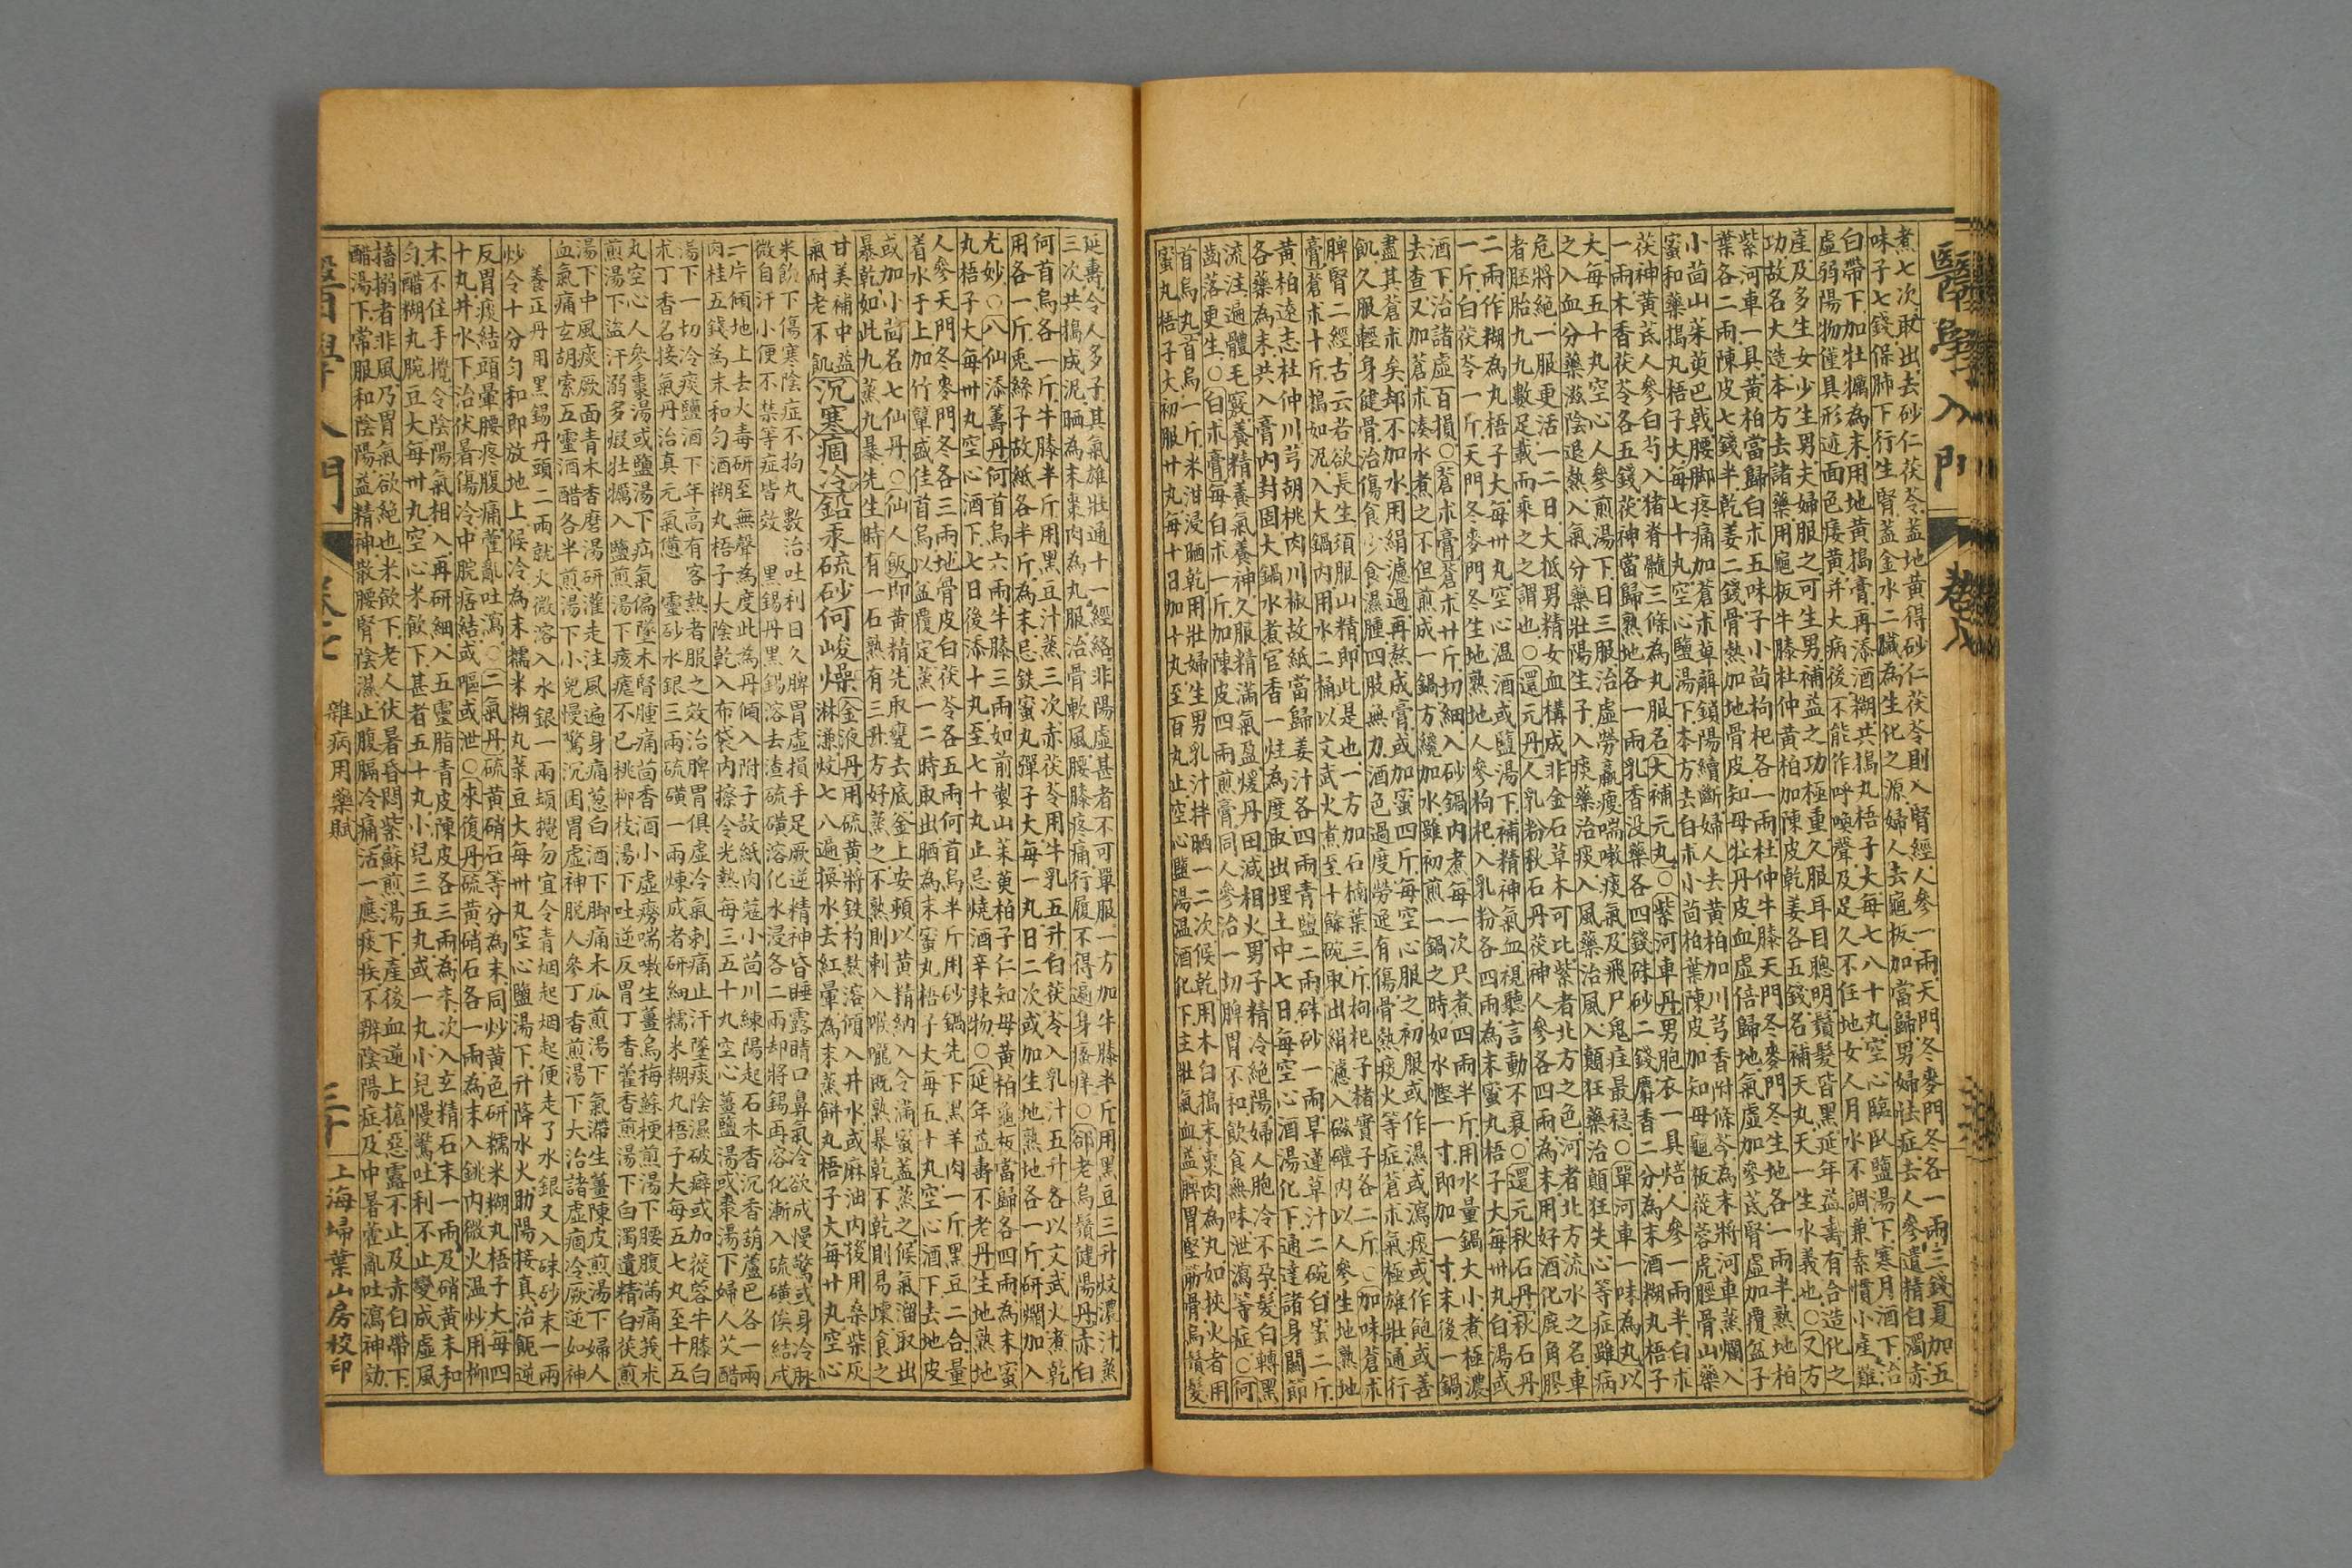 醫學入門 卷七
煮七次取出去砂仁茯苓蓋地黃得砂仁茯苓則入腎經人參一兩天門冬麥門冬各一兩三錢夏加五
味子七錢保肺下行生腎蓋金水二臟為生化之源婦人去龜板加當歸男婦怯症去人參遺精白濁赤
白帶下加牡蠣為末用地黃搗膏再添酒糊共搗丸梧子大每七八十丸空心臨臥鹽湯下寒月酒下治
虛弱陽物僅具形迹面色痿黃并大病後不能作呼喚聲及足久不任地女人月水不調兼素慣小產難
產及多生女少生男夫婦服之可生男補益之功極重久服耳目聰明鬚髮皆黑延年益壽有合造化之
功故名大造本方去諸藥用龜板牛膝杜仲黃柏加陳皮乾姜各五錢名補天丸天一生水義也○又方
紫河車一具黃柏當歸白朮五味子小茴枸杞各一兩杜仲牛膝天門冬麥門冬生地各一兩半熟地柏
葉各二兩陳皮七錢半乾姜二錢骨熱加地骨皮知母牡丹皮血虛倍歸地氣虛加參芪腎虛加覆盆子
小茴山茱萸巴戟腰脚疼痛加蒼朮萆薢鎖陽續斷婦人去黃柏加川芎香附條芩為末將河車蒸爛入
蜜和藥搗丸梧子大每七十丸空心鹽湯下本方去白朮小茴柏葉陳皮加知母龜板蓯蓉虎脛骨山藥
茯神黃芪人參白芍入猪脊髓三條為丸服名大補元丸○紫河車丹男胞衣一具焙人參一兩半白朮
一兩木香茯苓各五錢茯神當歸熟地各一兩乳香没藥各四錢硃砂二錢麝香二分為末酒糊丸梧子
大每五十丸空心人參煎湯下日三服治虛勞羸瘦喘嗽痰氣及飛尸鬼疰最穩○單河車一味為丸以
之入血分藥滋陰退熱入氣分藥壯陽生子入痰藥治痰入風藥治風入顛狂藥治顛狂失心等症雖病
危將絕一服更活一二日大抵男精女血構成非金石草木可比紫者北方之色河者北方流水之名車
者胚胎九九數足載而乘之之謂也○還元丹人乳粉秋石丹茯神人參各四兩為末用好酒化鹿角膠
二兩作糊為丸梧子大每卅丸空心温酒或鹽湯下補精神氣血視聽言動不衰○還元秋石丹秋石丹
一斤白茯苓一斤天門冬麥門冬生地熟地人參枸杞入乳粉各四兩為末蜜丸梧子大每卅丸白湯或
酒下治諸虛百損○蒼朮膏蒼朮廿斤切細入砂鍋内煮每一次尺煮四兩半斤用水量鍋大小煮極濃
去查又加蒼朮湊水煮之不但煎成一鍋方纔加水雖初煎一鍋之時如水慳一寸即加一寸末後一鍋
盡其蒼朮矣却不加水用絹濾過再熬成膏或加蜜四斤每空心服之初服或作濕或瀉痰或作飽或善
飢久服輕身健骨治傷食少食濕腫四肢無力酒色過度勞逸有傷骨熱痰火等症蒼朮氣極雄壯通行
脾腎二經古云若欲長生須服山精即此是也一方加石楠葉三斤枸杞子楮實子各二斤○加味蒼朮
膏蒼朮十斤搗如泥入大鍋内用水二桶以文武火煮至十餘碗取出絹濾入磁礶内以人參生地熟地
黃柏遠志杜仲川芎胡桃肉川椒故紙當歸姜汁各四兩青鹽二兩硃砂一兩旱蓮草汁二碗白蜜二斤
各藥為末共入膏内封固大鍋水煮官香一炷為度取出埋土中七日每空心酒湯化下通達諸身關節
流注遍體毛竅養精養氣養神久服精滿氣盈煖丹田減相火男子精冷絕陽婦人胞冷不孕髮白轉黑
齒落更生○白朮膏每白朮一斤加陳皮四兩煎膏同人參治一切脾胃不和飲食無味泄瀉等症○何
首烏丸首烏一斤米泔浸晒乾用壯婦生男乳汁拌晒一二次候乾用木臼搗末棗肉為丸如挾火者用
蜜丸梧子大初服廿丸每十日加十丸至百丸止空心鹽湯温酒化下主壯氣血益脾胃堅筋骨烏鬚髮
延壽令人多子其氣雄壯通十一經絡非陽虛甚者不可單服一方加牛膝半斤用黑豆三升炆濃汁蒸
三次共搗成泥晒為末棗肉為丸服治骨軟風腰膝疼痛行履不得遍身瘙痒○卻老烏鬚健陽丹赤白
何首烏各一斤牛膝半斤用黑豆汁蒸三次赤茯苓用牛乳五升白茯苓入乳汁五升各以文武火煮乾
用各一斤兎絲子故紙各半斤為末忌鉄蜜丸彈子大每一丸日二次或加生地熟地各一斤研爛加入
尤妙○八仙添壽丹何首烏六兩牛膝三兩如前製山茱萸柏子仁知母黃柏龜板當歸各四兩為末蜜
丸梧子大每卅丸空心酒下七日後添十丸至七十丸止忌燒酒辛辣物○延年益壽不老丹生地熟地
人參天門冬麥門冬各三兩地骨皮白茯苓各五兩何首烏半斤用砂鍋先下黑羊肉一斤黑豆二合量
着水于上加竹篳盛佳首烏以盆覆定蒸一二時取出晒為末蜜丸梧子大每五十丸空心酒下去地皮
或加小茴名七仙丹○仙人飯即黃精先取甕去底釜上安頓以黃精納入令滿蜜蓋蒸之候氣溜取出
暴乾如此九蒸九暴先生時有一石熟有三升方好蒸之不熟則刺入喉嚨既熟暴乾不乾則易壞食之
甘美補中益氣耐老不飢
沉寒痼冷鉛汞硫砂何峻燥
金液丹用硫黃將鉄杓熬溶傾入井水或麻油内後用桑柴灰
淋濂炆七八遍換水去紅暈為末蒸餅丸梧子大每廿丸空心
米飲下傷寒陰症不拘丸數治吐利日久脾胃虛損手足厥逆精神昏睡露睛口鼻氣冷欲成慢驚或身冷脉
微自汗小便不禁等症皆效 黑錫丹黑錫溶去渣硫磺溶化水浸各二兩却將錫再容化漸入硫磺俟結成
一片傾地上去火毒研至無聲為度此為丹頭入附子故紙肉蔻小茴川練陽起石木香沉香葫蘆巴各一兩
肉桂五錢為末和勻酒糊丸梧子大陰乾入布袋内擦令光熱每三五十丸空心薑鹽湯或棗湯下婦人艾醋
湯下一切冷痰鹽酒下年高有客熱者服之效治脾胃俱虛冷氣刺痛止汗墜痰陰濕破癖或加蓯蓉牛膝白
朮丁香名接氣丹治真元氣憊 靈砂水銀三兩硫磺一兩煉成者研細糯米糊丸梧子大每五七丸至十五
丸空心人參棗湯或鹽湯下疝氣偏墜木腎腫痛茴香酒小虛癆喘嗽生薑烏梅蘇梗煎湯下腰腹滿痛莪朮
煎湯下盜汗溺多煆牡蠣入鹽煎湯下痎瘧不已桃柳枝湯下吐逆反胃丁香藿香煎湯下白濁遺精白茯煎
湯下中風痰厥面青木香磨湯研灌走注風遍身痛葱白酒下脚痛木瓜煎湯下氣滯生薑陳皮煎湯下婦人
血氣痛玄胡索五靈酒醋各半煎湯下小兒慢驚沉困胃虛神脫人參丁香煎湯下大治諸虛痼冷厥逆如神
養正丹用黑錫丹頭二兩就火微溶入水銀一兩頓攪勿宜令青烟起烟起便走了水銀又入硃砂末一兩
炒令十分勻和即放地上候冷為末糯米糊丸菉豆大每卅丸空心鹽湯下升降水火助陽接真治飢逆
反胃痰結頭暈腰疼腹痛霍亂吐瀉○二氣丹硫黃硝石等分為末同炒黃色研糯米糊丸梧子大每四
十丸井水下治伏暑傷冷中脘痞結或嘔或泄○來復丹硫黃硝石各一兩為末入銚内微火温炒用柳
木不住手攪令陰陽氣相入再研細入五靈脂青皮陳皮各三兩為末次入玄精石末一兩及硝黃末和
勻醋糊丸腕豆大每卅丸空心米飲下甚者五十丸小兒三五丸或一丸小兒慢驚吐利不止變成虛風
搐搦者非風乃胃氣欲絕也米飲下老人伏暑昏悶紫蘇煎湯下產後血逆上搶惡露不止及赤白帶下
醋湯下常服和陰陽益精神散腰腎陰濕止腹膈冷痛活一應痰疾不辨陰陽症及中暑霍亂吐瀉神効
醫學入門 卷七 雜病用藥賦 三十 上海埽葉山房校印